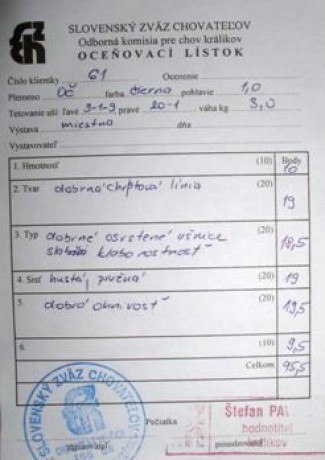 SLOVENSKÝ ZVÄZ CHOVATEĽOV
Odborná komisia pre chov králikov
OCEŇOVACÍ LÍSTOK
Číslo klietky 61 Ocenenie
Plemeno farba čierna pohlavie 1,0
Tetovanie uší: ľavé 9-1-9 pravé 20-1 váha kg 3,0
Výstava miestna dňa
Vystavovateľ
1. Hmotnosť (10) Body 10
2. Tvar dobrá chrbtová línia (20) 19
3. Typ dobré osrstené ušnice (20) 18,5
slabšia klabonosnosť
4. Srsť hustá, pružná (20) 19
5. dobrá ohnivosť (20) 19,5
6. (10) 9,5
Celkom 95,5
SLOVENSKÝ ZVÄZ CHOVATEĽOV
Pečiatka
Štefan
hodnotiteľ
králikov
posudzovateľ